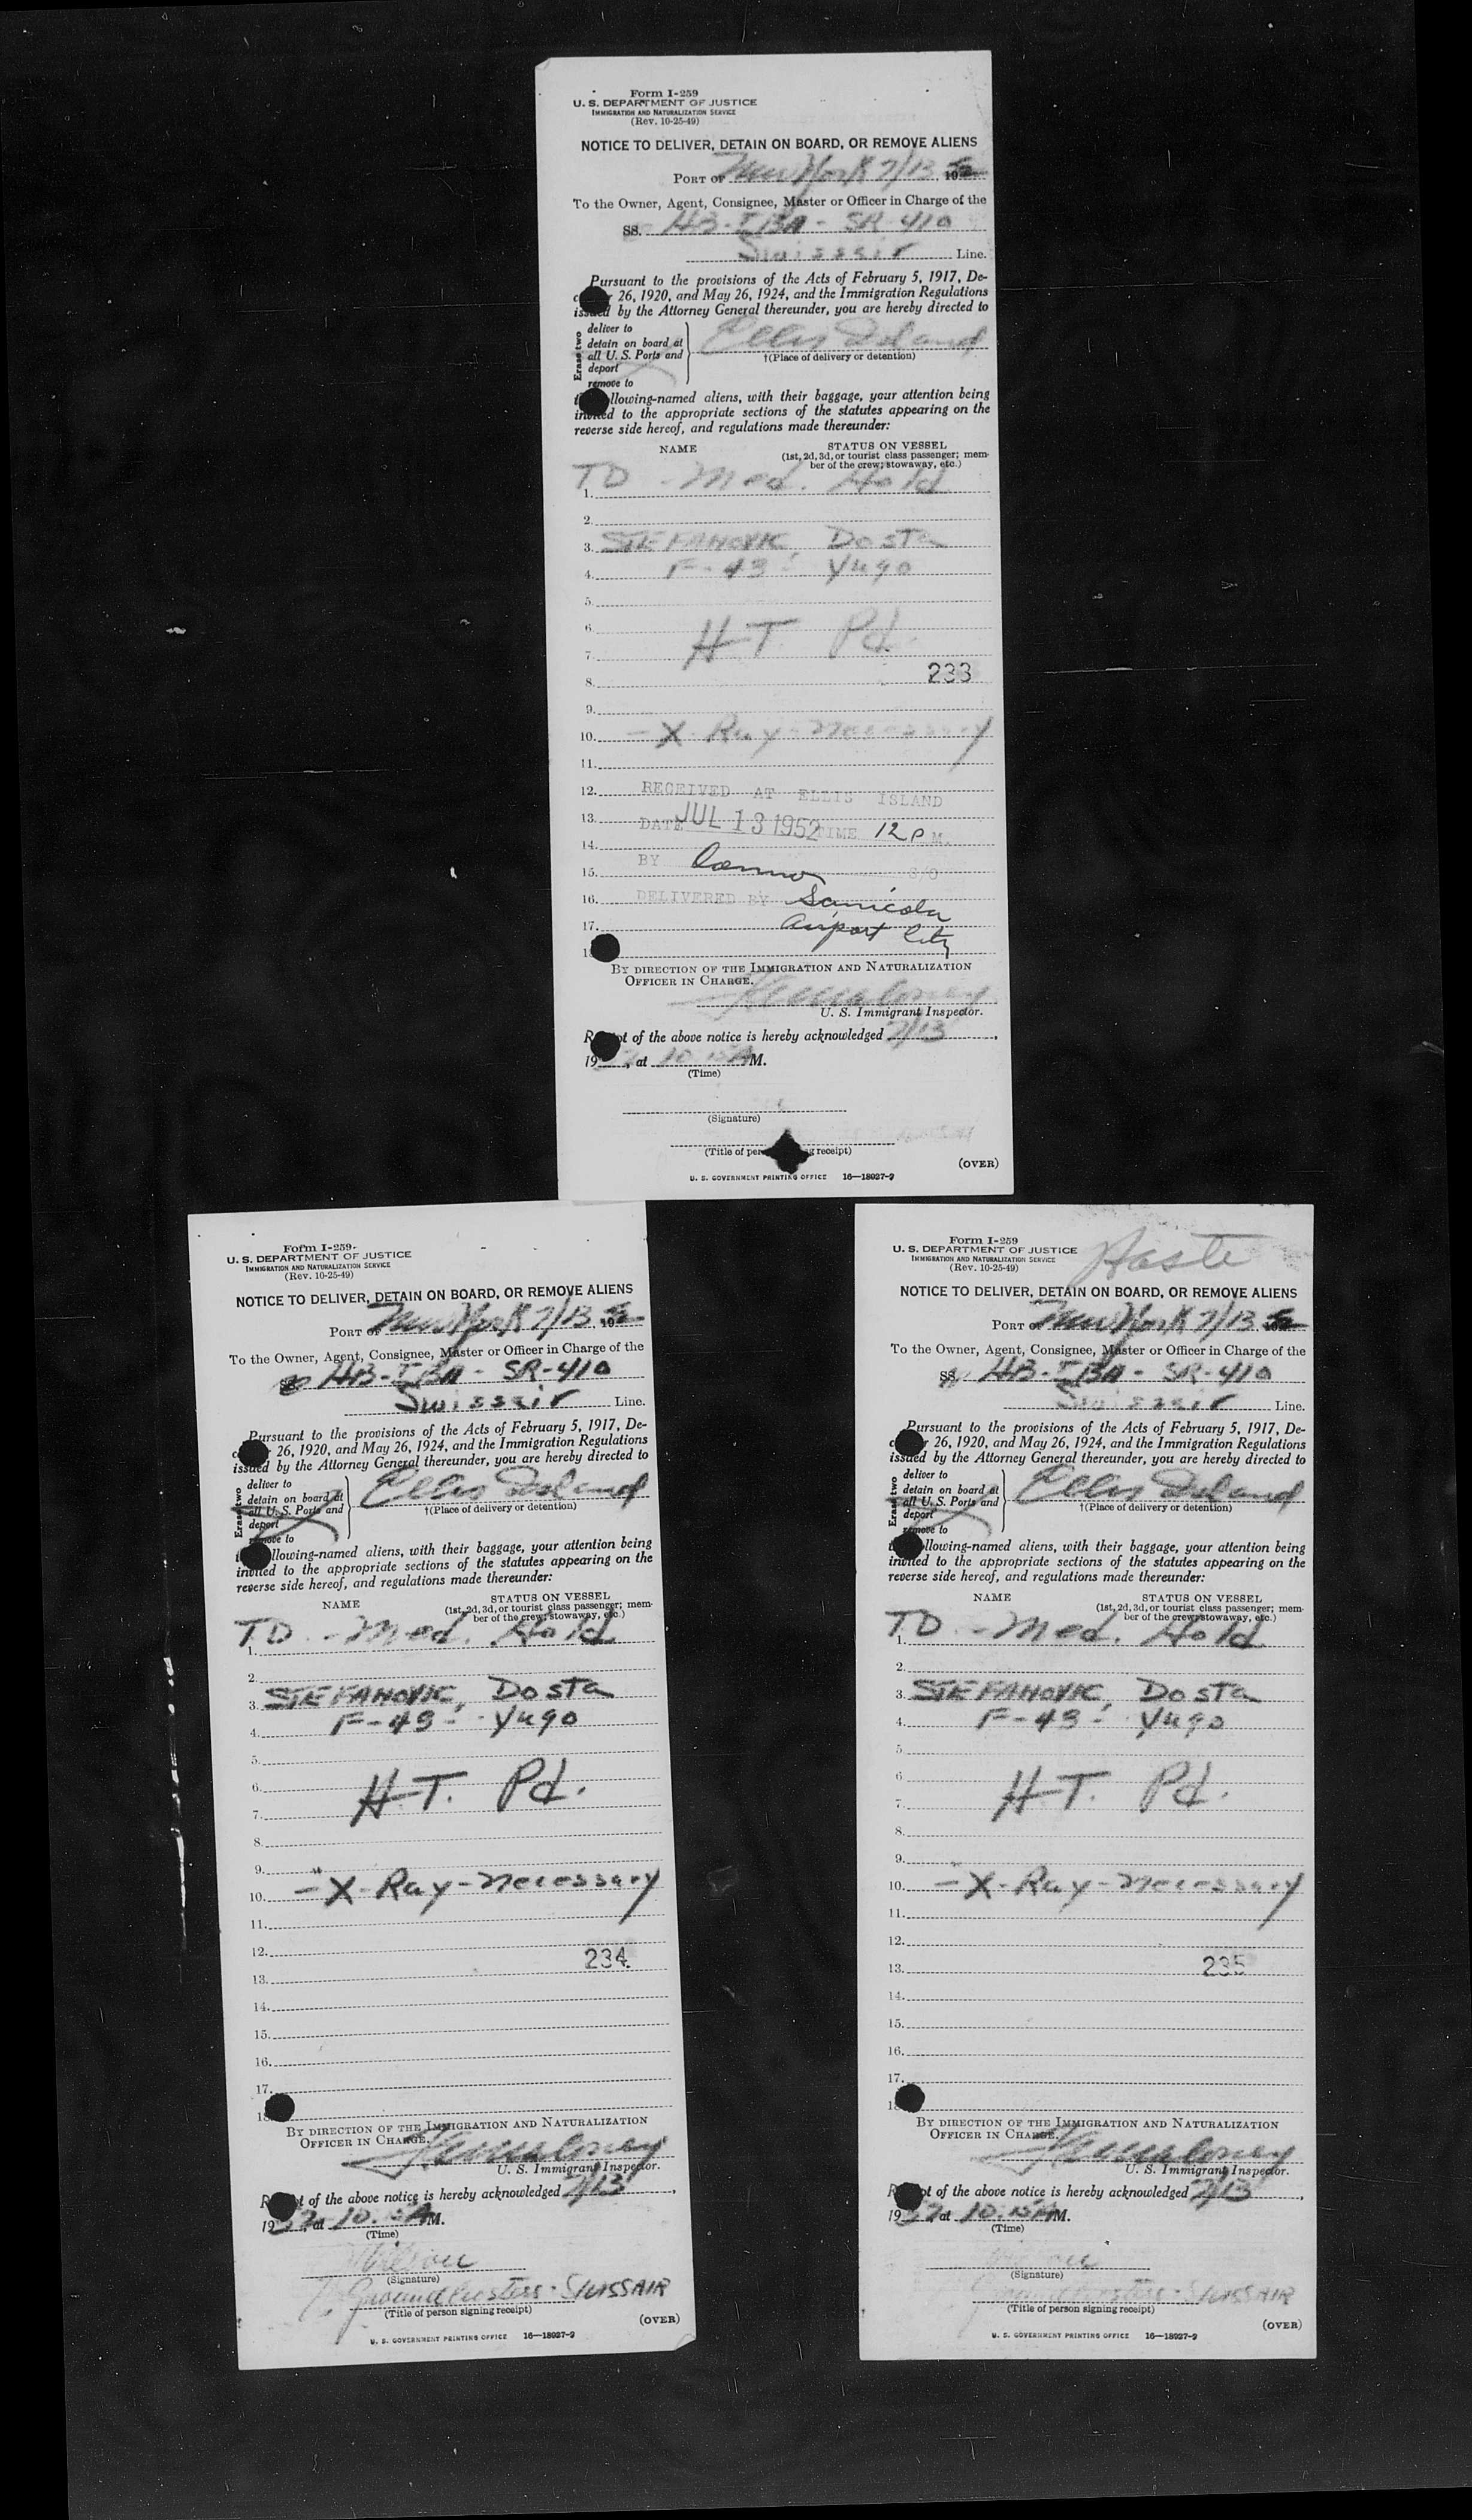 Form I-259
U. S. DEPARTMENT OF JUSTICE
IMMIGRATION AND NATURALIZATION SERVICE
(Rev. 10-25-49)
NOTICE TO DELIVER, DETAIN ON BOARD, OR REMOVE ALIENS
PORT OF New York 7/13, 19 52
To the Owner, Agent, Consignee, Master or Officer in Charge of the
SS. HB-IBA - SR-410
Swissair Line.
Pursuant to the provisions of the Acts of February 5, 1917, De-
26, 1920, and May 26, 1924, and the Immigration Regulations
issued by the Attorney General thereunder, you are hereby directed to
Erase two
deliver to
detain on board at
all U. S. Ports and
deport
remove to
Ellis Island
†(Place of delivery or detention)
llowing-named aliens, with their baggage, your attention being
invited to the appropriate sections of the statutes appearing on the
reverse side hereof, and regulations made thereunder:
NAME STATUS ON VESSEL
(1st, 2d, 3d, or tourist class passenger; mem-
ber of the crew; stowaway, etc.)
TD - Med. Hold
1.
2.
3. STEFANOVIC, Dosta
4. F-43 - Yugo
5.
6.
H.T. Pd.
7.
8. 233
9.
10. - X-Ray - Necessary
11.
12. RECEIVED AT ELLIS ISLAND
13. DATE JUL 13 1952 TIME 12 P M.
14.
15. BY
16. DELIVERED BY
17. Airport City
BY DIRECTION OF THE IMMIGRATION AND NATURALIZATION
OFFICER IN CHARGE.
U. S. Immigrant Inspector.
R t of the above notice is hereby acknowledged 7/13,
19 , at 10.15 A M.
(Time)
(Signature)
(Title of per g receipt)
(OVER)
U. S. GOVERNMENT PRINTING OFFICE 16—18027-2
Form I-259
U. S. DEPARTMENT OF JUSTICE
IMMIGRATION AND NATURALIZATION SERVICE
(Rev. 10-25-49)
NOTICE TO DELIVER, DETAIN ON BOARD, OR REMOVE ALIENS
PORT OF New York 7/13, 19 52
To the Owner, Agent, Consignee, Master or Officer in Charge of the
HB-IBA - SR-410
Swissair Line.
Pursuant to the provisions of the Acts of February 5, 1917, De-
26, 1920, and May 26, 1924, and the Immigration Regulations
issued by the Attorney General thereunder, you are hereby directed to
Erase two
deliver to
detain on board at
all U. S. Ports and
deport
remove to
Ellis Island
†(Place of delivery or detention)
llowing-named aliens, with their baggage, your attention being
invited to the appropriate sections of the statutes appearing on the
reverse side hereof, and regulations made thereunder:
NAME STATUS ON VESSEL
(1st, 2d, 3d, or tourist class passenger; mem-
ber of the crew; stowaway, etc.)
TD - Med. Hold
1.
2.
3. STEFANOVIC, Dosta
4. F-43 - Yugo
5.
6.
H.T. Pd.
7.
8.
9.
10. - X-Ray - Necessary
11.
12. 234
13.
14.
15.
16.
17.
BY DIRECTION OF THE IMMIGRATION AND NATURALIZATION
OFFICER IN CHARGE.
U. S. Immigrant Inspector.
R t of the above notice is hereby acknowledged 7/13,
19 52, at 10.15 A M.
(Time)
(Signature)
Ground Hostess - SWISSAIR
(Title of person signing receipt)
(OVER)
U. S. GOVERNMENT PRINTING OFFICE 16—18027-2
Form I-259
U. S. DEPARTMENT OF JUSTICE
IMMIGRATION AND NATURALIZATION SERVICE
(Rev. 10-25-49)
Haste
NOTICE TO DELIVER, DETAIN ON BOARD, OR REMOVE ALIENS
PORT OF New York 7/13 52
To the Owner, Agent, Consignee, Master or Officer in Charge of the
SS. HB-IBA - SR-410
Swissair Line.
Pursuant to the provisions of the Acts of February 5, 1917, De-
26, 1920, and May 26, 1924, and the Immigration Regulations
issued by the Attorney General thereunder, you are hereby directed to
Erase two
deliver to
detain on board at
all U. S. Ports and
deport
remove to
Ellis Island
†(Place of delivery or detention)
llowing-named aliens, with their baggage, your attention being
invited to the appropriate sections of the statutes appearing on the
reverse side hereof, and regulations made thereunder:
NAME STATUS ON VESSEL
(1st, 2d, 3d, or tourist class passenger; mem-
ber of the crew; stowaway, etc.)
TD - Med. Hold
1.
2.
3. STEFANOVIC, Dosta
4. F-43 - Yugo
5.
6.
H.T. Pd.
7.
8.
9.
10. - X-Ray - Necessary
11.
12.
13. 235
14.
15.
16.
17.
BY DIRECTION OF THE IMMIGRATION AND NATURALIZATION
OFFICER IN CHARGE.
U. S. Immigrant Inspector.
R t of the above notice is hereby acknowledged 7/13,
19 52, at 10.15 A M.
(Time)
(Signature)
Ground Hostess - SWISSAIR
(Title of person signing receipt)
(OVER)
U. S. GOVERNMENT PRINTING OFFICE 16—18027-2